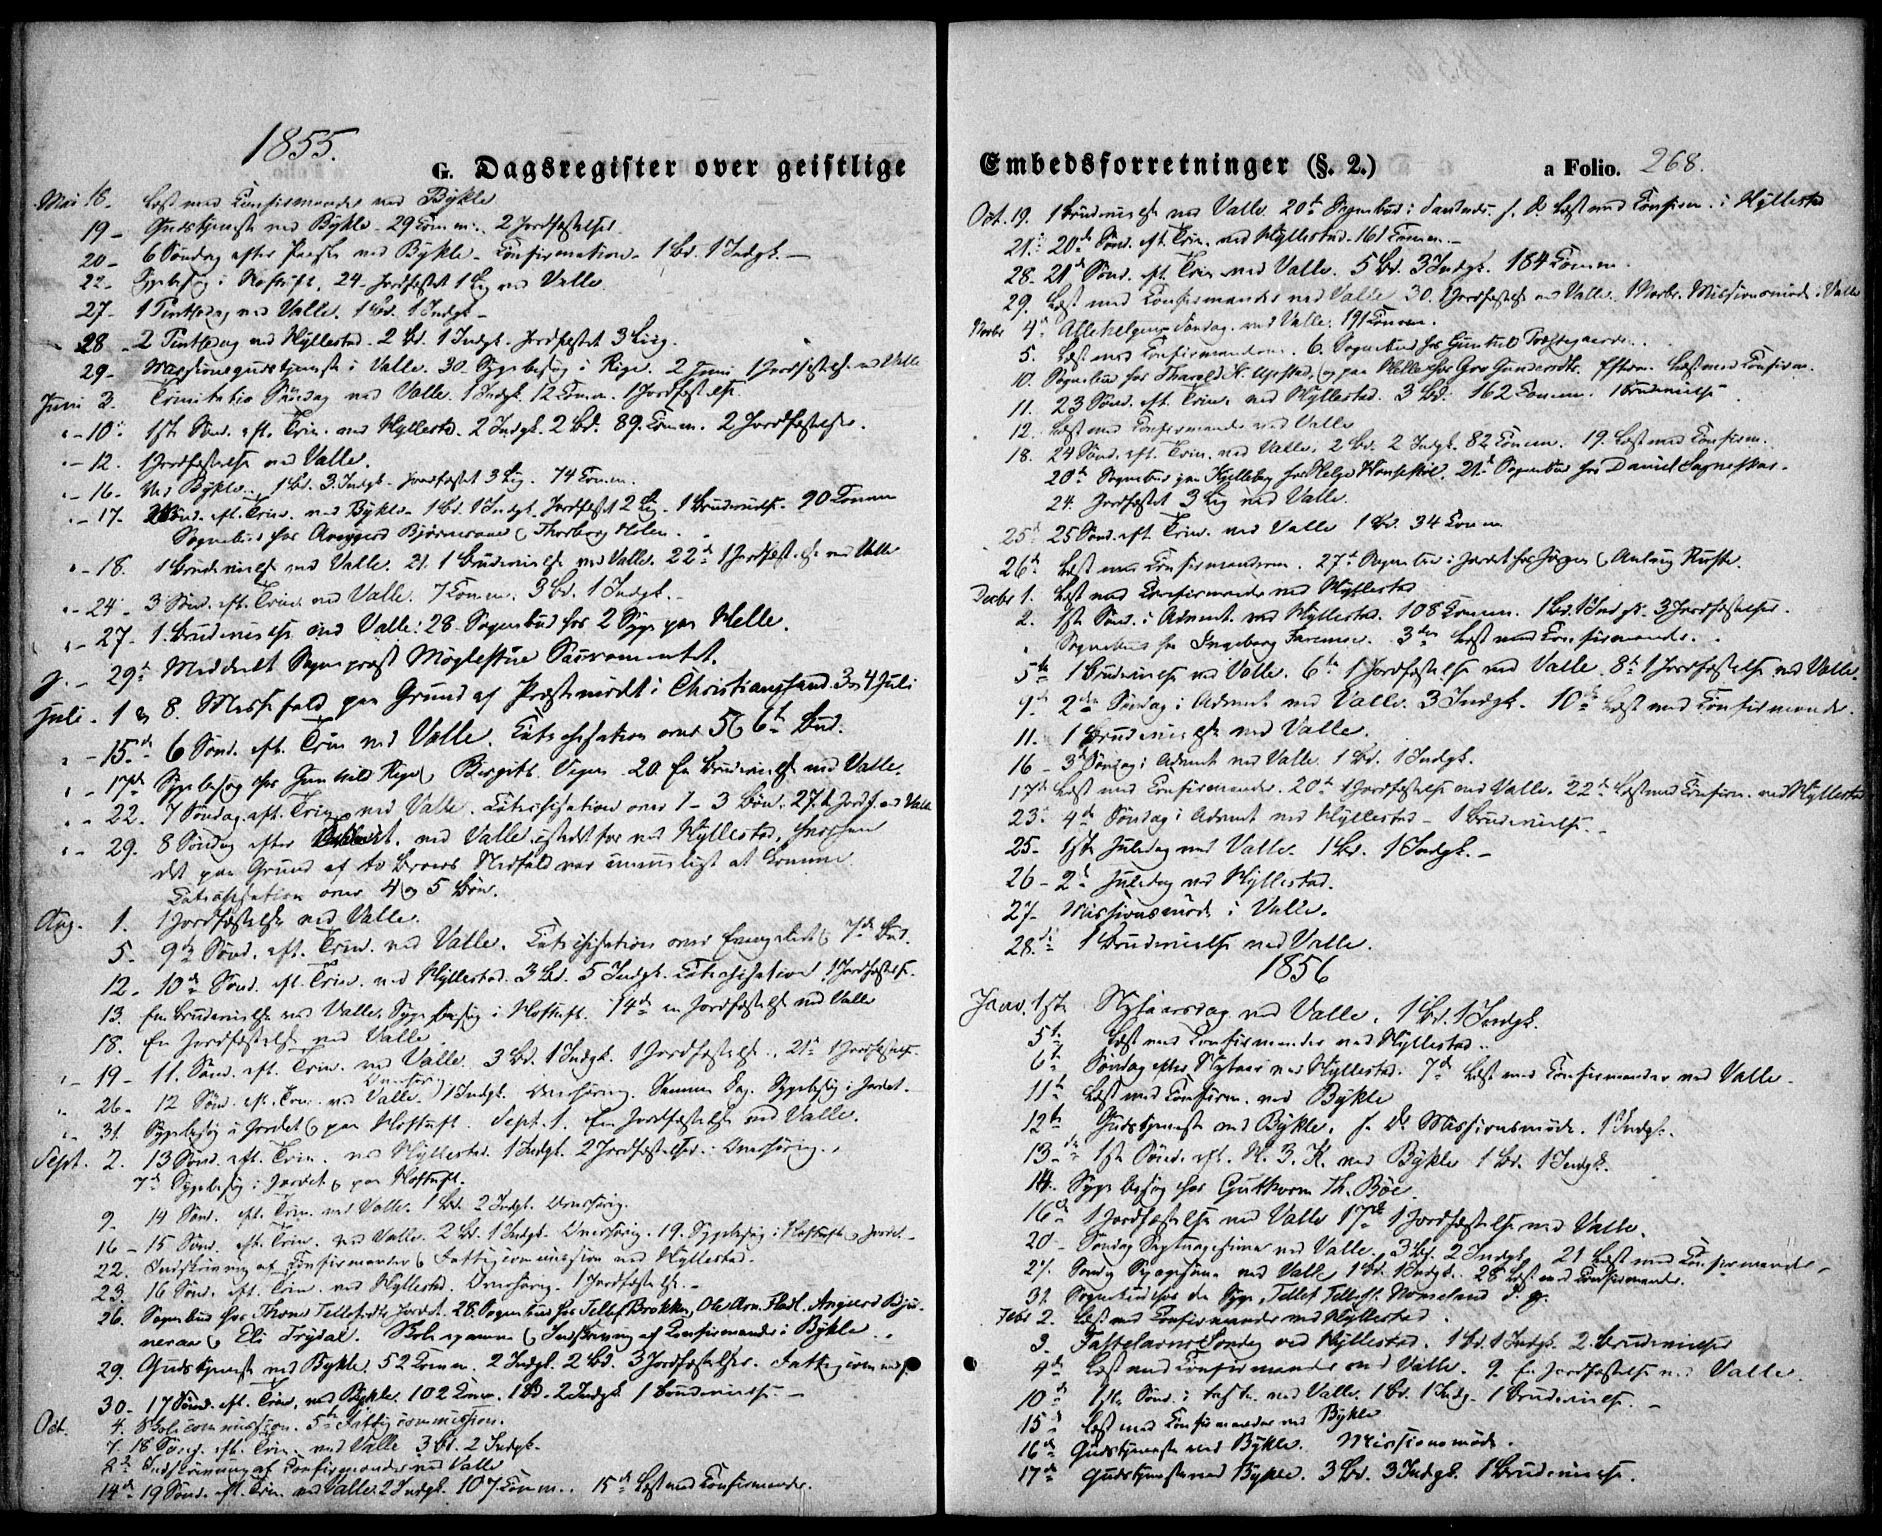 1855.
G. Dagsregister over geistlige
Mai 18. Læst med Confirmander ved Bykle
19 - Gudstjeneste ved Bykle. 29 Comm. 2 Jordfæstelser.
20 - 6 Søndag efter Paaske ved Bykle - Confirmation - 1 Bd. 1 Indgk. -
22 - Sygebesøg i 24. Jordfæstet 1 Lig ved Valle.
27 - 1 Pintsedag ved Valle. 1 Bd. 1 Indgk -
28 - 2 Pintsedag ved Hyllestad. 2 Bd. 1 Indgk. Jordfæstet 3 Liig.
29 - Missionsgudstjeneste i Valle. 30. Sygebesøg i Rige. 2 Juni 1 Jordfæstelse ved Valle
Juni 3. Trinitatis Søndag ved Valle. 1 Indgk. 12 Comm. 1 Jordfæstelse.
" - 10. 1ste Sønd. eft. Trin. ved Hyllestad. 2 Indgk. 2 Bd. 89. Comm. 2 Jordfæstelser.
" - 12. 1 Jordfæstelse ved Valle.
" - 16. Ved Bykle. 1 Bd. 3. Indgk. Jordfæstet 3 Lig. 74 Comm.
" - 17. Sønd. eft. Trin. ved Bykle - 1 Bd. 1 Indgk. Jordfæstet 2 Lig. 1 Brudevielse. 90 Comm
Sognebud hos Anggerd Bjørneraae & Thorborg Holen.
" - 18. 1 Brudevielse ved Valle. 21. 1 Brudevielse ved Valle. 22de 1 Jordfæstelse ved Valle
" - 24 - 3 Sønd. eft. Trin. ved Valle. 7 Comm. 3 Bd. 1 Indgk. -
" - 27 - 1. Brudevielse ved Valle. 28. Sognebud hos 2 Syge paa Helle.
" - 29de Meddeelt Sognepræst Møglestue Sacramentet.
Juli - 1 & 8. Messefald paa Grund af Præstemødet i Christianssand 3 & 4 Juli
" - 15de 6 Sønd. eft. Trin ved Valle. Catechisation over 5 & 6te Bud.
" - 17de Sygebesøg hos Gunhild Rige & Birgitte 20. En Brudevielse ved Valle.
" - 22. 7 Søndag eft. Trin. ved Valle. Catechisation over 1 - 3 Bøn. 27de Jordf. ved Valle
" - 29. 8 Søndag efter ved Valle istedetfor ved Hyllestad, hvorhen
det paa Grund af to Broers Nedfald var umuligt at komme.
Catechisation over 4 og 5 Bøn.
Aug. 1. 1 Jordfæstelse ved Valle.
5. 9de Sønd. eft. Trin. ved Valle. Catechisation over Evangeliet & 7de Bud.
12. 10de Sønd. eft. Trin. ved Hyllestad. 3 Bd. 5 Indgk. Catechisation. 1 Jordfæstelse.
13. En Brudevielse ved Valle. Sygebesøg i Hoftuft. 14de en Jordfæstelse ved Valle
18. En Jordfæstelse ved Valle.
" - 19 - 11. Sønd. eft. Trin. ved Valle. 3 Bd. 1 Indgk. 1 Jordfæstelse. 21de 1 Jordfæstelse.
" 26 - 12 Sønd. eft. Trin. ved Valle. 1 Indgk. Overhøring. Samme Dag. Sygebesøg i Jordet.
" 31. Sygebesøg i Jordet & paa Hoftuft. Sept. 1. En Jordfæstelse ved Valle.
Sept. 2. 13 Sønd. eft. Trin. ved Hyllestad. 1 Indgk. 2 Jordfæstelser. Overhøring.
7de Sygebesøg i Jordet & paa Hoftuft.
9. 14 Sønd. eft. Trin. ved Valle. 1 Bd. 2 Indgk. Overhøring.
16 - 15 Sønd. eft. Trin. ved Valle. 2 Bd. 1 Indgk. Overhøring. 19. Sygebesøg i Hoftuft & Jordet. -
22. Indskrivning af Confirmander & Fattigcommission ved Hyllestad.
23. 16 Sønd. eft. Trin. ved Hyllestad. Overhøring. 1 Jordfæstelse. -
26. Sognebud hos Thorne Tellefsdtr Jordet. 28. Sognebud hos Tellef Brokke, Ole Arn. Anggerd Bjør-
neraae & Eli Trydal. Skoleexamen & Indskrivning af Confirmander i Bykle.
29. Gudstjeneste ved Bykle. 52 Comm. 2 Indgk. 2 Bd. 3 Jordfæstelser. Fattigcommiss.
30. - 17 Sønd. eft. Trin. ved Bykle. 102 Comm. 1 Bd. 2 Indgk. 1 Brudevielse -
Oct. 4. Skolecommission. 5te Fattigcommission.
7. 18 Sønd. eft. Trin. ved Valle 3 Bd. 2 Indgk.
8de Indskrivning af Confirmander ved Valle
14de 19 Sønd. eft. Trin. ved Valle. 2 Indgk. 107 Comm. 15de Læst med Confirmander.
Embedsforretninger (§. 2.)
a Folio. 268.
Oct. 19. 1 Brudevielse ved Valle. 20de Sognebud i s. D. Læst med Confirm. i Hyllestad
21. 20de Sønd. eft. Trin. ved Hyllestad. 161 Comm. -
28 - 21de Sønd. eft. Trin. ved Valle. 5 Bd. 3 Indgk. 184 Comm.
29. Læst med Confirmander ved Valle. 30. 1 Jordfæstelse ved Valle. 1 Novbr. Missionsmøde i Valle
Novbr 4de Allehelgens Søndag ved Valle. 191 Comm.
5. Læst med Confirmanderne. 6. Sognebud hos Gunhild
10. Sognebud hos Tharald K. og paa Helle hos Gro Gundersdtr. Efterm. Læst med Confirm.
11. 23 Sønd. eft. Trin. ved Hyllestad. 3 Bd. 162 Comm. 1 Brudevielse.
12. Læst med Confirmander ved Valle
18. 24 Sønd. eft. Trin. ved Valle. 2 Bd. 2 Indgk. 82 Comm. 19. Læst med Confirm.
20de Sognebud paa Kjelleberg hos Helge 21de Sognebud hos Daniel
24. Jordfæstet 3 Lig ved Valle.
25de 25 Sønd. eft. Trin. ved Valle 1 Bd. 34 Comm
26de Læst med Confirmanderne. 27de Sognebud i Jordet hos Jørgen & Anlaug
Decbr 1. Læst med Confirmander ved Hyllestad
2. 1ste Sønd. i Advent ved Hyllestad. 108 Comm. 1 Bd. 1 Indgk. 3 Jordfæstelser.
Sognebud hos Ingeborg 3de Læst med Confirmander.
5te 1 Brudevielse ved Valle. 6te 1 Jordfæstelse ved Valle. 8de 1 Jordfæstelse ved Valle.
9de 2den Søndag i Advent ved Valle. 3 Indgk. 10de Læst med Confirmander.
11. 1 Brudevielse ved Valle.
16 - 3de Søndag i Advent ved Valle 1 Bd. 1 Indgk.
17de Læst med Confirmander. 20de 1 Jordfæstelse ved Valle. 22de Læst med Confirm. ved Hyllestad
23. 4de Søndag i Advent ved Hyllestad - 1 Brudevielse. -
25 - 1ste Juledag ved Valle. 1 Bd. 1 Indgk. -
26 - 2de Juledag ved Hyllestad.
27 - Missionsmøde i Valle.
28de 1 Brudevielse ved Valle.
1856
Januar. 1ste Nytaarsdag ved Valle. 1 Bd. 1 Indgk.
5te Læst med Confirmander ved Hyllestad.
6te Søndag efter Nytaar ved Hyllestad. 7de Læst med Confirmander ved Valle.
11te Læst med Confirm. ved Bykle
12te Gudstjeneste ved Bykle. s. D. Missionsmøde. 1 Indgk.
13de 1ste Sønd. eft. H. 3. K. ved Bykle 1 Bd. 1 Indgk.
14. Sygebesøg hos Gutthorm Th. Bøe.
16de 1 Jordfæstelse ved Valle 17de 1 Jordfæstelse ved Valle.
20 - Søndag Septuagesima ved Valle. 3 Bd. 2 Indgk. 21 Læst med Confirmander.
27. Sønd. Sexagesima ved Valle 1 Bd. 1 Indgk. 28 Læst med Confirmander.
31 Sognebud hos den Syge Tellef Tellefs.
Febr 2. Læst med Confirmander ved Hyllestad.
3. Fastelavns Søndag ved Hyllestad. 1 Bd. 1 Indgk. 2. Brudevielser
4de Læst med Confirmander ved Valle. 9 En Jordfæstelse ved Valle.
10de 1ste Sønd. i Faste ved Valle. 1 Bd. 1 Indg. 1 Brudevielse. -
15de Læst med Confirmander ved Bykle
16de Gudstjeneste ved Bykle. Missionsmøde.
17de Gudstjeneste ved Bykle. 3 Bd. 3 Indgk. 1 Brudevielse.